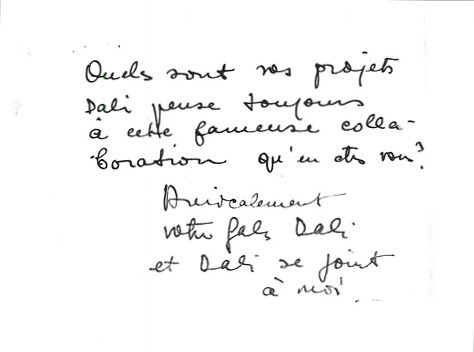 Quels sont vos projets
Dali pense toujours
à cette fameuse colla-
boration qu'en êtes vous?
Amicalement
votre Gala Dali
et Dali se joint
à moi.